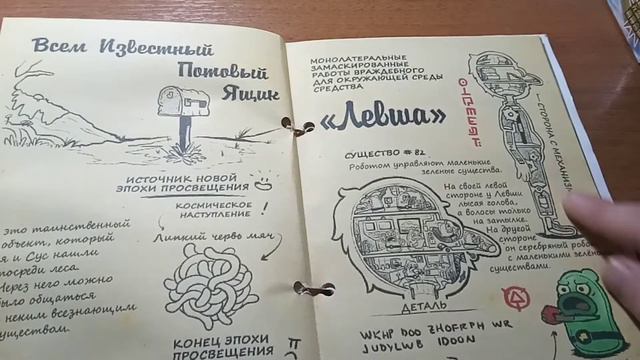 Всем Известный
Потовый
Ящик
ИСТОЧНИК НОВОЙ
ЭПОХИ ПРОСВЕЩЕНИЯ
КОСМИЧЕСКОЕ
НАСТУПЛЕНИЕ !
Липкий червь мяч
это таинственный
объект, который
я и Сус нашли
посреди леса
Через него можно
было общаться
с неким всезнающим
существом.
КОНЕЦ ЭПОХИ
ПРОСВЕЩЕНИЯ
МОНОЛАТЕРАЛЬНЫЕ
ЗАМАСКИРОВАННЫЕ
РАБОТЫ ВРАЖДЕБНОГО
ДЛЯ ОКРУЖАЮЩЕЙ СРЕДЫ
СРЕДСТВА
«Левша»
СУЩЕСТВО # 82
Роботом управляют маленькие
зеленые существа.
На своей левой
стороне у Левши
лысая голова,
а волосы только
на затылке.
На другой
стороне
он серебряный
с маленькими
существами.
ДЕТАЛЬ
СТОРОНА С
WKHB DOO ZHOFRPH WR
JUDYLWB IDOON